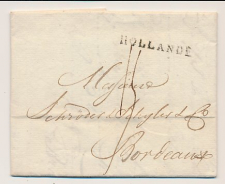 HOLLANDE
Messieurs
Schröder & Schyler & Co
Bordeaux